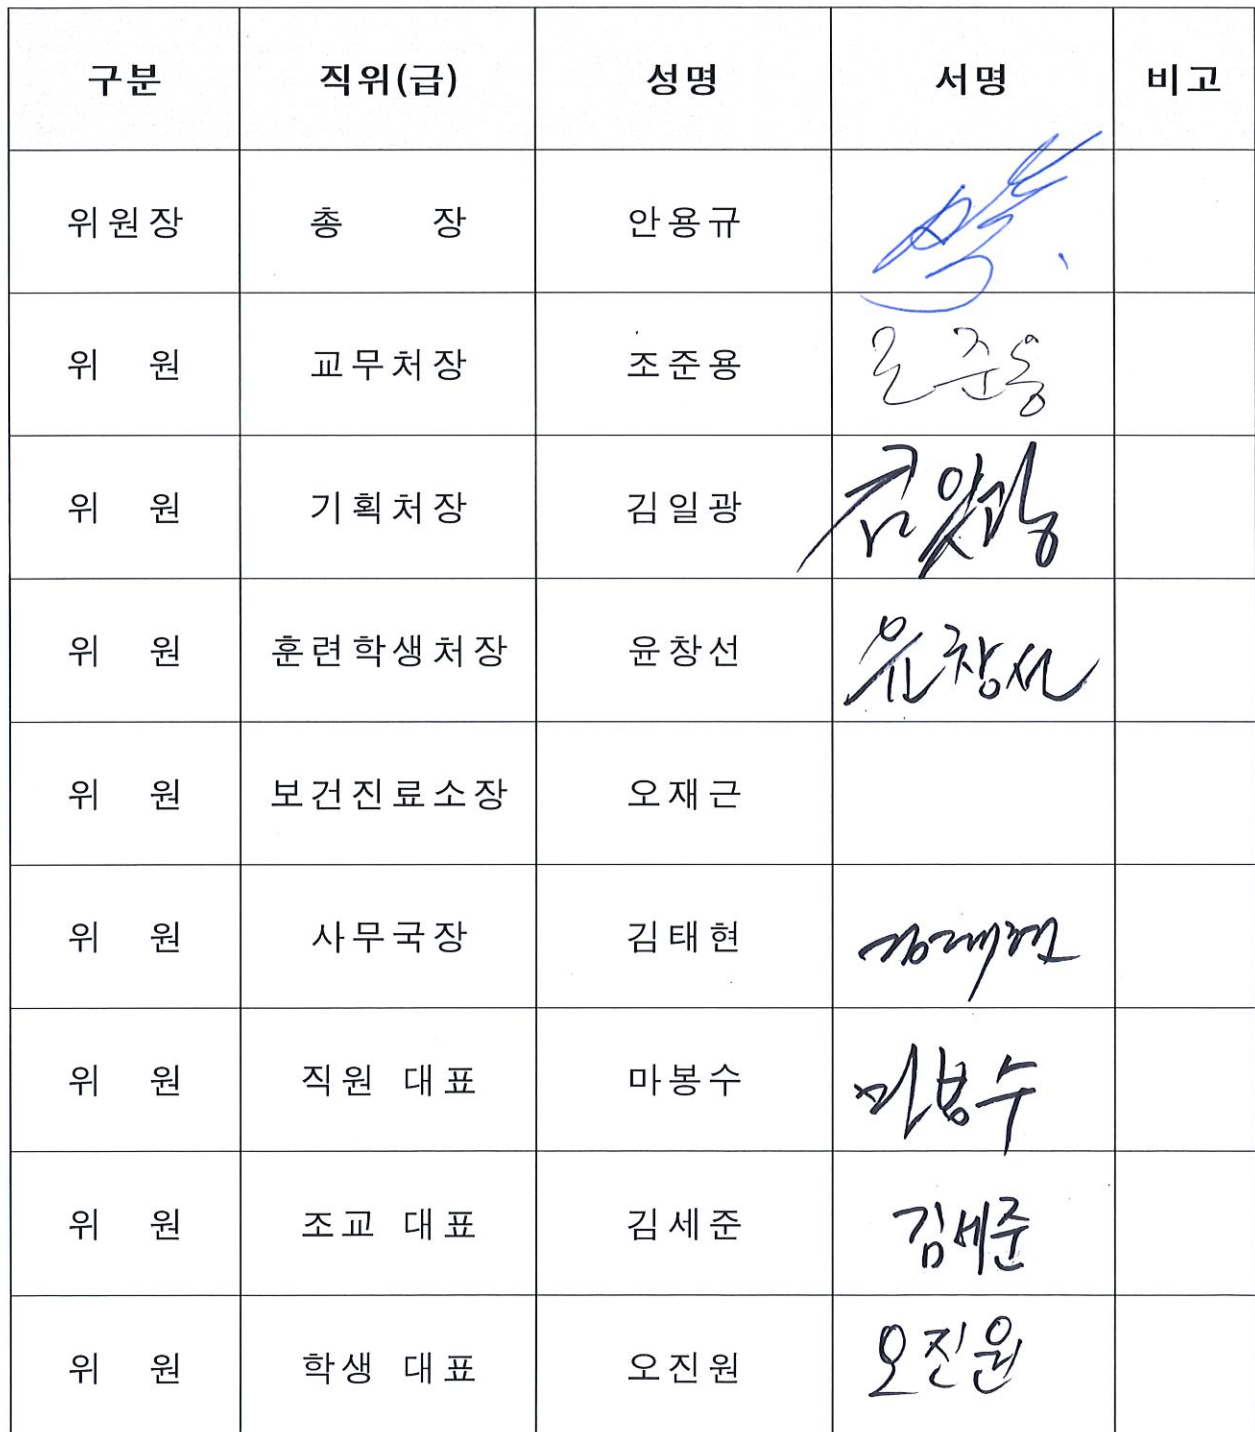 구분 직위(급) 성명 서명 비고
위원장 총 장 안용규
위 원 교무처장 조준용 조준용
위 원 기획처장 김일광 김일광
위 원 훈련학생처장 윤창선 윤창선
위 원 보건진료소장 오재근
위 원 사무국장 김태현 김태현
위 원 직원 대표 마봉수 마봉수
위 원 조교 대표 김세준 김세준
위 원 학생 대표 오진원 오진원